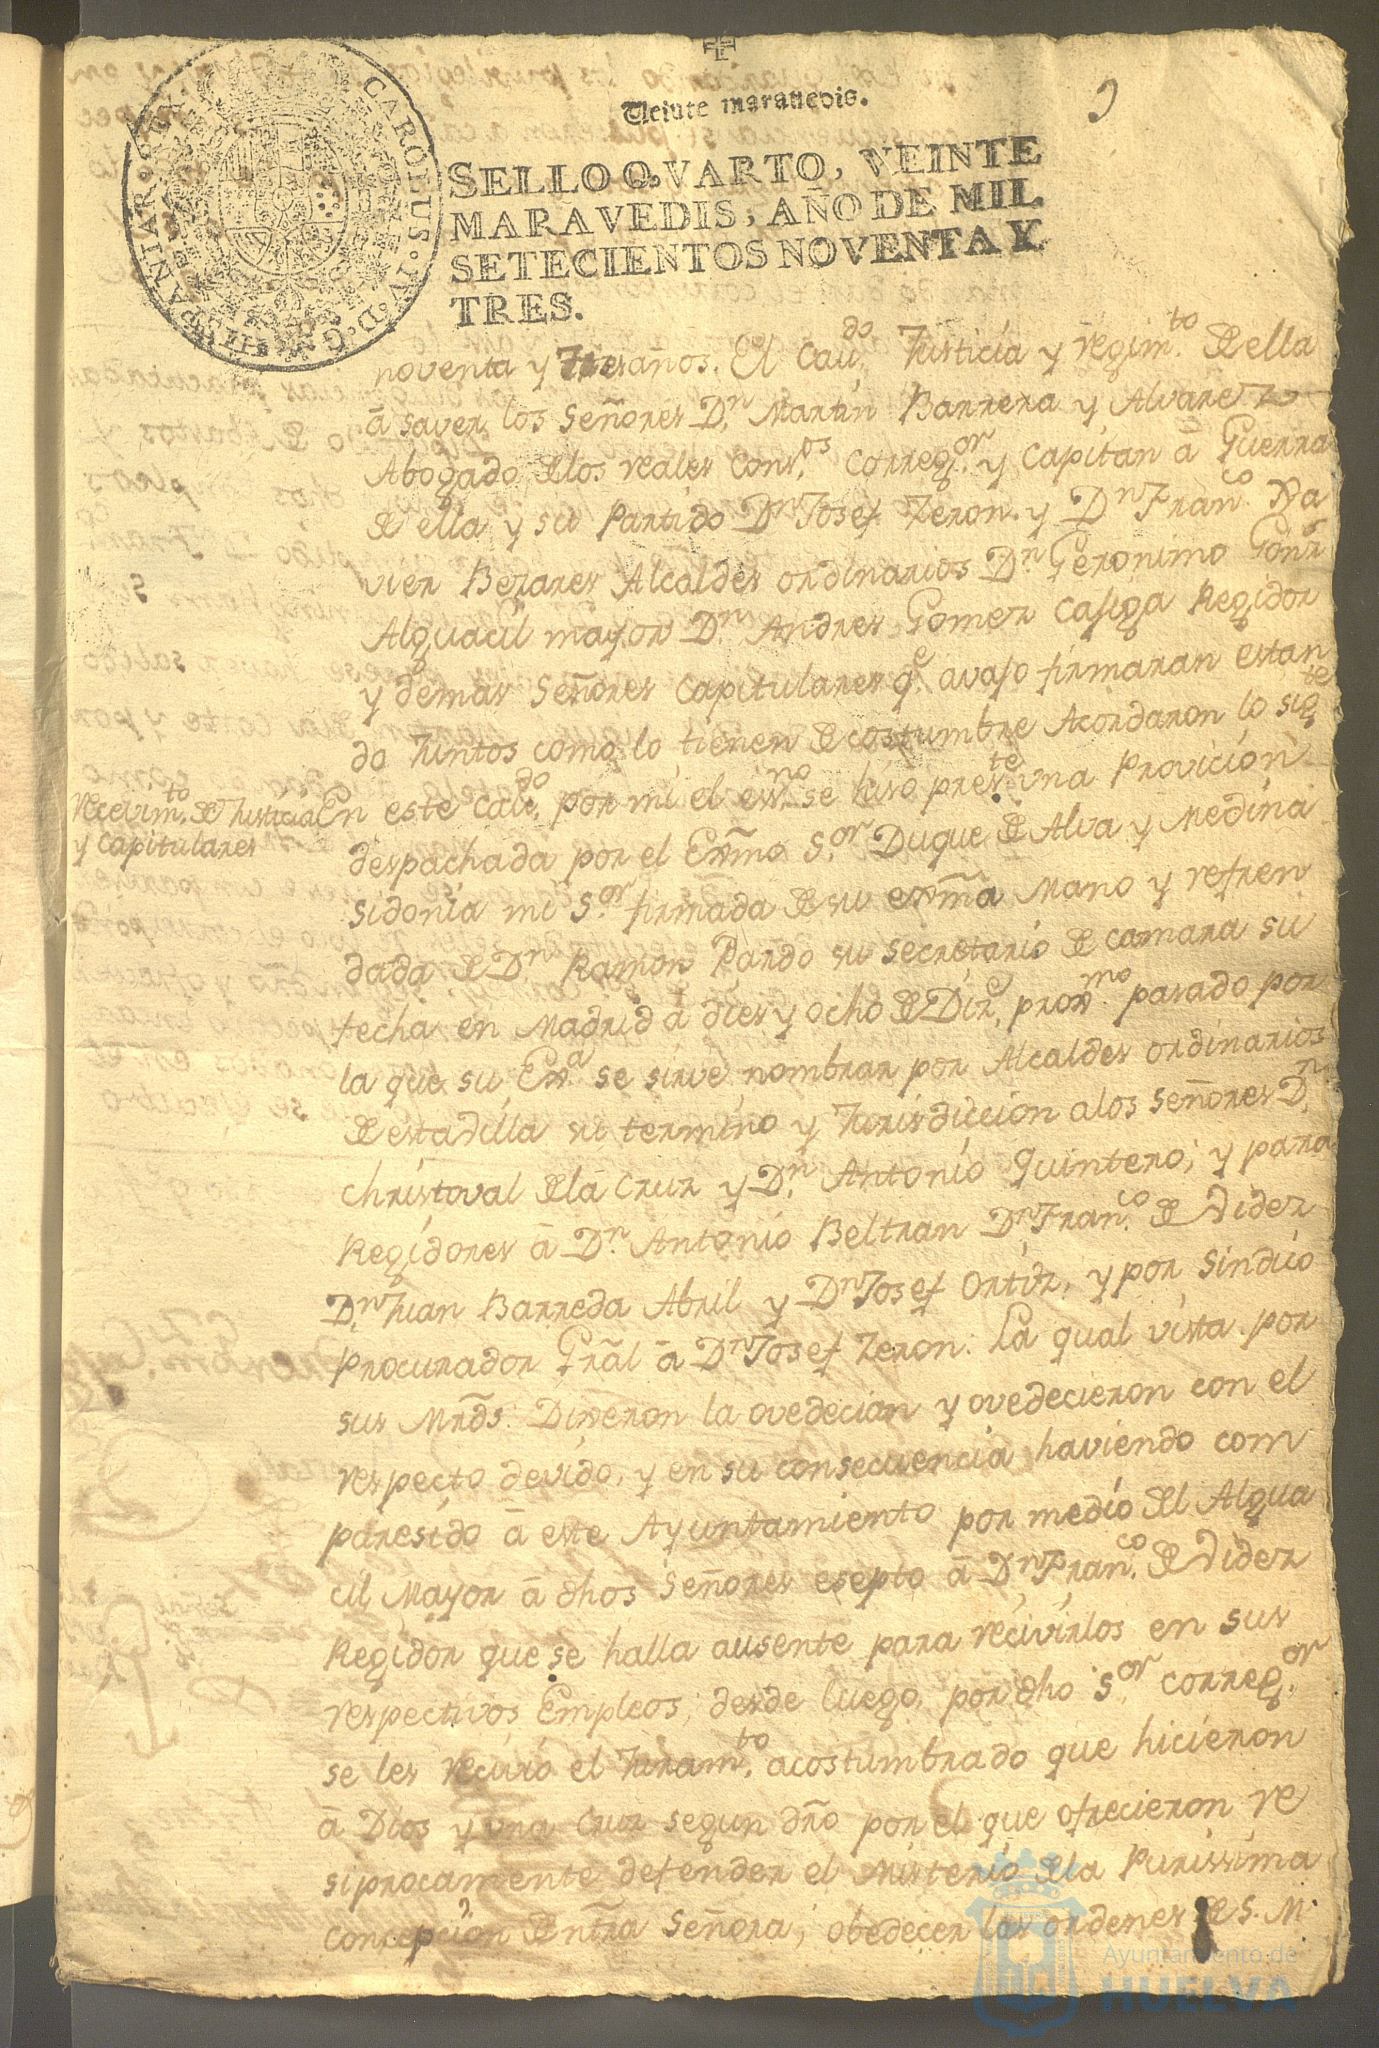 Veinte maravedis.
SELLO QVARTO, VEINTE
MARAVEDIS, AÑO DE MIL
SETECIENTOS NOVENTA Y
TRES.
CAROLUS·IV·D·G·HISPANIAR·REX
noventa y tres años. El Cavdo. Justicia y regimto. de ella
â saver los Señores Dn. Martin Barrera y Alvarez
Abogado de los reales Consos. Corregor. y Capitan â Guerra
de ella y su Partido Dn Josef Zeron y Dn Franco. Xa
vier Bezares Alcaldes ordinarios Dn Geronimo Gonz
Alguacil mayor Dn. Andres Gomez Casiga Regidor
y demas Señores Capitulares qe. avajo firmaran estan
do Juntos como lo tienen de costumbre Acordaron lo sigte
recevimto. de Justicia
y Capitulares
En este cavdo. por mi el essno. se hiso preste. una Provicion
despachada por el Exmo Sor. Duque de Alva y Medina
sidonia mi Sor. firmada de su exma Mano y refren
dada de Dn Ramon Pardo su secretario de camara su
fecha en Madrid â dies y ocho de Dize. proxmo. pasado por
la que su Exa. se sirve nombrar por Alcaldes ordinarios
de esta villa su termino y Jurisdiccion a los señores Dn.
Christoval de la Cruz y Dn. Antonio Quintero; y para
Regidores â Dn. Antonio Beltran Dn Franco. de Videz
Dn. Juan Barreda Abril y Dn Josef Ortiz, y por Sindico
procurador Gral â Dn Josef Zeron. La qual vista por
sus Mrds. Dixeron la ovedecian y ovedecieron con el
respecto devido, y en su consecuencia haviendo com
paresido â este Ayuntamiento por medio del Algua
cil Mayor â dhos Señores esepto â Dn Franco. de Videz
Regidor que se halla ausente para recivirlos en sus
respectivos Empleos; desde luego, por dho Sor. Corregor.
se les recivio el Juramto. acostumbrado que hicieron
â Dios y una Cruz segun dro por el que ofrecieron re
siprocamente defender el Misterio de la Purissima
Concepcion de Ntra Señora; obedecer las ordenes de S. M.
Ayuntamiento de
HUELVA